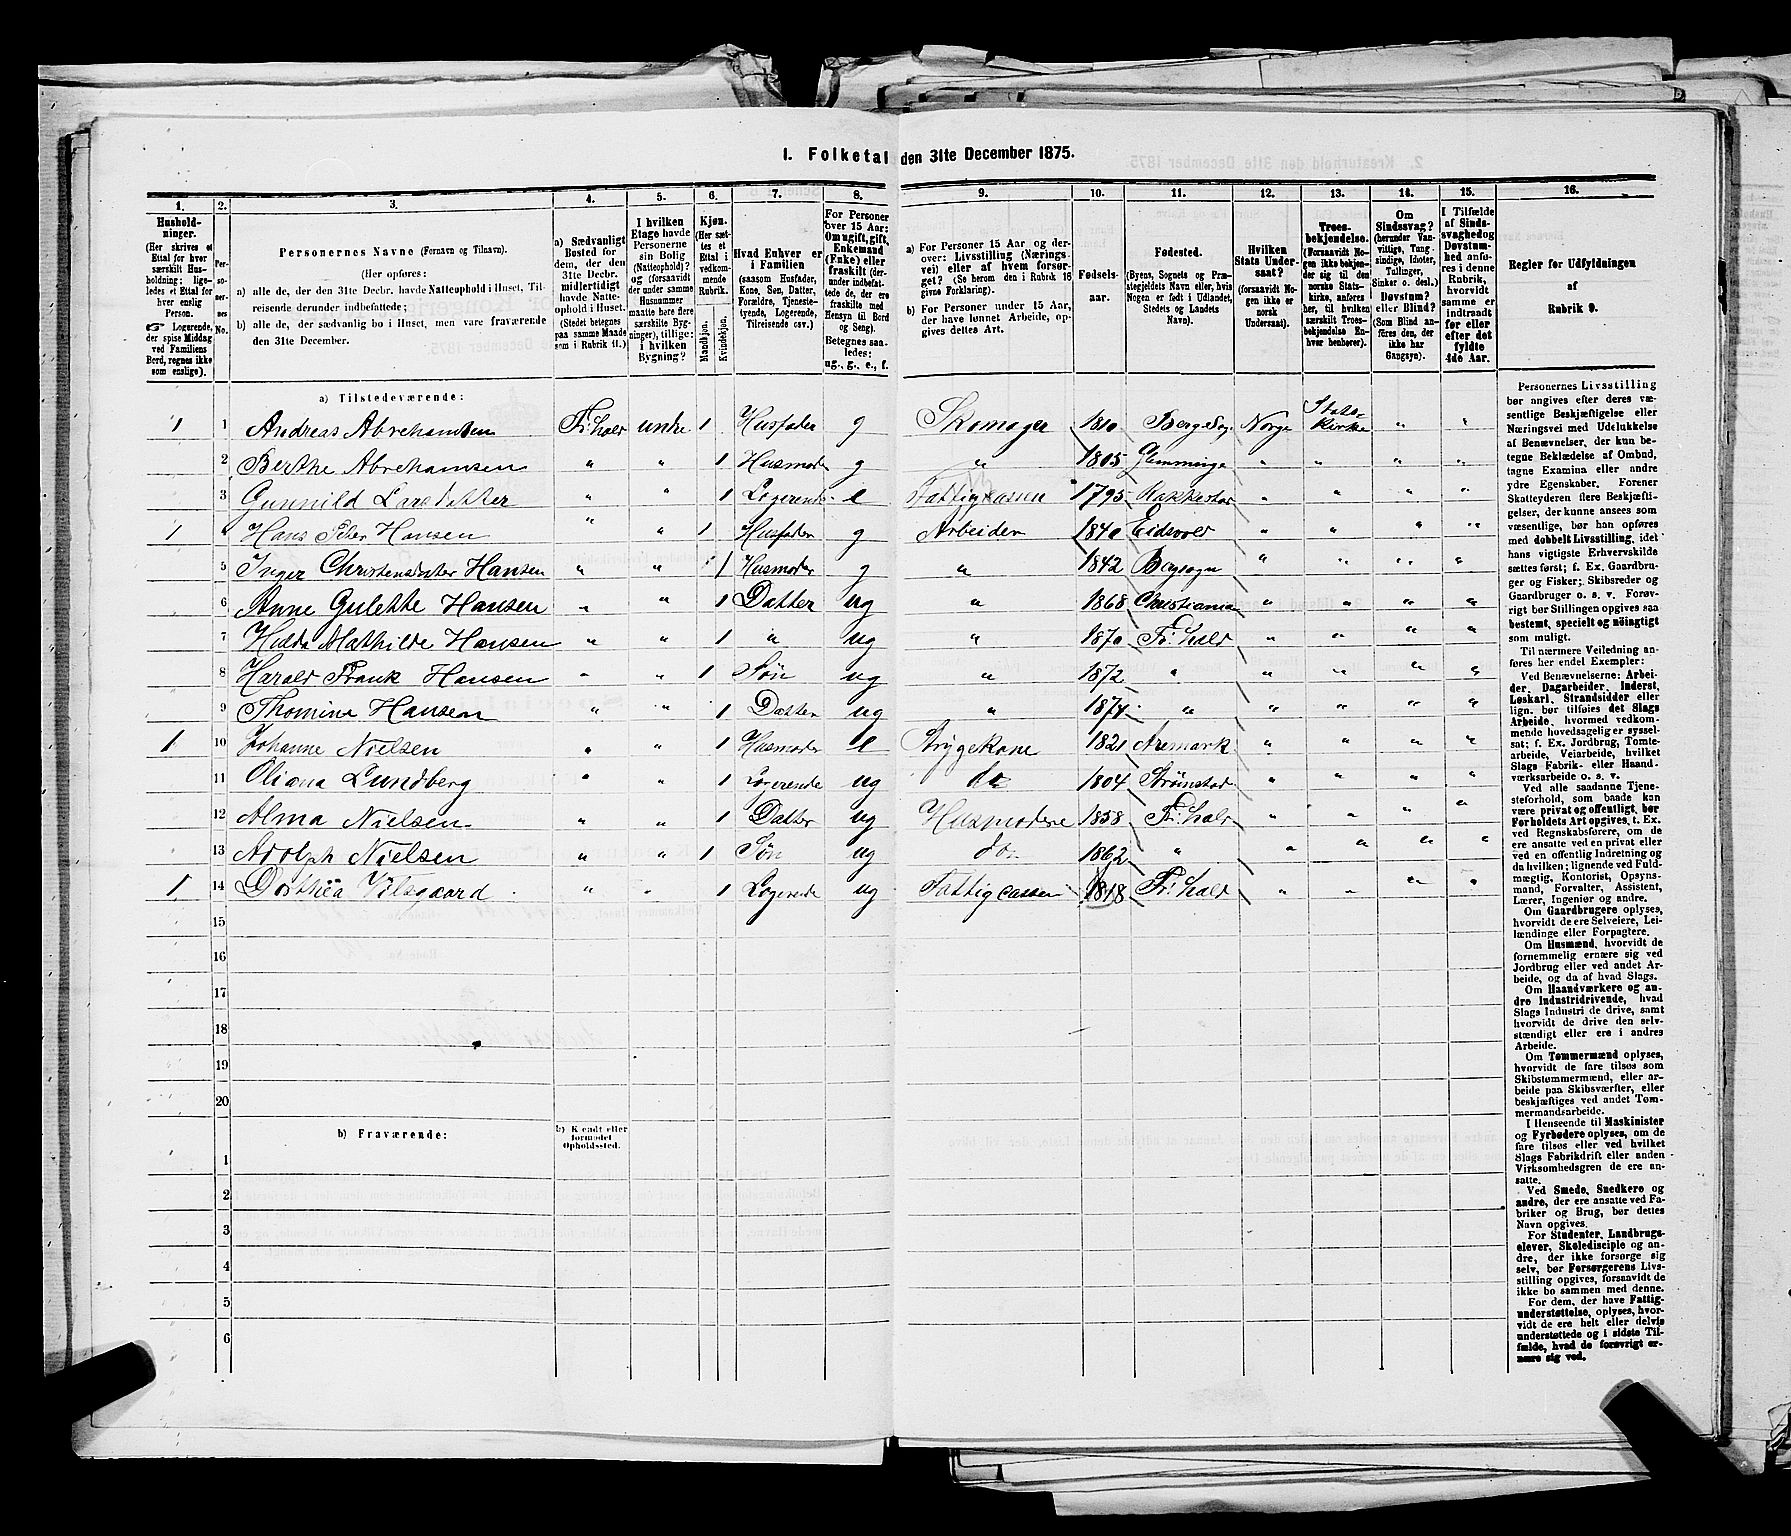 1. Folketal den 31te December 1875.
1. 2. 3. 4. 5. 6. 7. 8. 9. 10. 11. 12. 13. 14. 15. 16.
Hushold-
ninger.
(Her skrives et
Ettal for hver
særskilt Hus-
holdning; lige-
ledes et Ettal for
hver enslig
Person.
☞ Logerende,
der spise Middag
ved Familiens
Bord, regnes ikke
som enslige).
Per-
so-
ner-
nes
No.
Personernes Navne (Fornavn og Tilnavn).
(Her opføres:
a) alle de, der den 31te Decbr. havde Natteophold i Huset, Til-
reisende derunder indbefattede;
b) alle de, der sædvanlig bo i Huset, men vare fraværende
den 31te December.
a) Sædvanligt
Bosted for
dem, der den
31te Decbr.
midlertidigt
havde Natte-
ophold i Huset.
(Stedet betegnes
paa samme Maade
som i Rubrik 11.)
I hvilken
Etage havde
Personerne
sin Bolig
(Natteophold)?
og (forsaavidt
der under samme
Husnummer
maatte høre flere
særskilte Byg-
ninger), tillige:
i hvilken
Bygning?
Kjøn.
(Her sæt-
tes et
Ettal i
vedkom-
mende
Rubrik.
Mandkjøn.
Kvindekjøn.
Hvad Enhver er
i Familien
(saasom Husfader,
Kone, Søn, Datter,
Forældre, Tjeneste-
tyende, Logerende,
Tilreisende osv.)
For Personer
over 15 Aar:
Om ugift, gift,
Enkemand
(Enke) eller
fraskilt (der-
under indbefat-
tede de, der ere
fraskilte med
Hensyn til Bord
og Seng).
Betegnes saa-
ledes:
ug., g., e., f.
a) For Personer 15 Aar og der-
over: Livsstilling (Nærings-
vei) eller af hvem forsør-
get? (Se herom den i Rubrik 16
givne Forklaring).
b) For Personer under 15 Aar,
der have lønnet Arbeide, op-
gives dettes Art.
Fødsels-
aar.
Fødested.
(Byens, Sognets og Præ-
stegjeldets Navn eller, hvis
Nogen er født i Udlandet,
Stedets og Landets
Navn).
Hvilken
Stats Under-
saat?
(forsaavidt No-
gen ikke er
norsk
Undersaat).
Troes-
bekjendelse.
(Forsaavidt No-
gen ikke bekjen-
der sig til den
norske Stats-
kirke, anføres
her, til hvilken
særskilt Troes-
bekjendelse En-
hver henhører).
Om
Sindssvag?
(herunder Van-
vittige, Tung-
sindige, Idioter,
Tullinger,
Sinker o. desl.)
Døvstum?
eller Blind?
(Som Blind an-
føres den, der
ikke har
Gangsyn).
I Tilfælde
af Sinds-
svaghed og
Døvstum-
hed anfø-
res i denne
Rubrik,
hvorvidt
samme er
indtraadt
før eller
efter det
fyldte
4de Aar.
Regler for Udfyldningen
af
Rubrik 9.
a) Tilstedeværende:
1 1 Andreas Abrehamsen Fr:hald undre 1 Husfader g Skomager 1810 Bergsog Norge Stats-kirke " "
2 Berthe Abrehamsen " " 1 Husmoder g " 1805 Glemminge " " " "
3 Gunnild Larsdatter " " 1 Logerende e Fattigkassen 1795 Rakkestad " " " "
1 4 Hans Peter Hansen " " 1 Husfader g Arbeider 1840 Eidsvold " " " "
5 Inger Christensdatter Hansen " " 1 Husmoder g " 1842 Bergsogn " " " "
6 Anne Gulette Hansen " " 1 Datter ug " 1868 Christiania " " " "
7 Hulda Mathilde Hansen " " 1 " ug " 1870 Fr:hald " " " "
8 Harald Frank Hansen " " 1 Søn ug " 1872 " " " " "
9 Thomine Hansen " " 1 Datter ug " 1874 " " " " "
1 10 Johanne Nielsen " " 1 Husmoder e Strygekone 1821 Aremark " " " "
11 Oliana Lundberg " " 1 Logerende ug do 1804 Strømstad " " " "
12 Alma Nielsen " " 1 Datter ug Husmodere 1858 Fr:hald " " " "
13 Adolph Nielsen " " 1 Søn ug do 1862 " " " " "
1 14 Dorthea Vilsgaard " " 1 Logerede ug Fattigcassen 1818 Fr:hald " " " "
15
16
17
18
19
20
b) Fraværende:
b) Kjendt eller
formodet
Opholdssted.
1
2
3
4
5
6
Personernes Livsstilling
bør angives efter deres væ-
sentlige Beskjæftigelse eller
Næringsvei med Udelukkelse
af Benævnelser, der kun be-
tegne Beklædelse af Ombud,
tagne Examina eller andre
ydre Egenskaber. Forener
Skatteyderen flere Beskjæfti-
gelser, der kunne ansees som
væsentlige, bør han opføres
med dobbelt Livsstilling, idet
hans vigtigste Erhvervskilde
sættes først; f. Ex. Gaardbru-
ger og Fisker; Skibsreder og
Gaardbruger o. s. v. Forøv-
rigt bør Stillingen opgives saa
bestemt, specielt og nøiagtigt
som muligt.
Til nærmere Veiledning an-
føres her endel Exempler:
Ved Benævnelserne: Arbei-
der, Dagarbeider, Inderst,
Løskarl, Strandsidder eller
lign. bør tilføies det Slags
Arbeide, hvormed vedkom-
mende hovedsagelig er syssel-
sat; f. Ex. Jordbrug, Tomte-
arbeide, Veiarbeide, hvilket
Slags Fabrik- eller Haand-
værksarbeide o. s. v.
Ved alle saadanne Tjene-
steforhold, som baade kan
være privat og offentligt, bør
Forholdets Art opgives, t. Ex.
ved Regnskabsførere, om de
ere ansatte ved en privat eller
ved en offentlig Indretning og
da hvilken; lignende ved Fuld-
mægtig, Kontorist, Opsyns-
mand, Forvalter, Assistent,
Lærer, Ingeniør og andre.
Om Gaardbrugere oplyses,
hvorvidt de ere Selveiere, Lei-
lændinge eller Forpagtere.
Om Husmænd, hvorvidt de
fornemmelig ernære sig ved
Jordbrug eller ved andet Ar-
beide, og da af hvad Slags.
Om Haandværkere og an-
dre Industridrivende, hvad
Slags Industri de drive, samt
hvorvidt de drive den selv-
stændigt eller ere i andres
Arbeide.
Om Tømmermænd oplyses,
hvorvidt de fare tilsøs som
Skibstømmermænd, eller ar-
beide paa Skibsværfter, eller
beskjæftiges ved andet Tøm-
mermandsarbeide.
I Henseende til Maskinister
og Fyrbødere oplyses, om de
fare tilsøs eller ved hvilket
Slags Fabrikdrift eller anden
Virksomhedsgren de ere an-
satte.
Ved Smede, Snedkere og
andre, der ere ansatte ved Fa-
briker og Brug, bør dettes
Navn opgives.
For Studenter, Landbrugs-
elever, Skoledisciple og an-
dre, der ikke forsørge sig
selv, bør Forsørgerens Livs-
stilling opgives, forsaavidt de
ikke bo sammen med denne.
For dem, der have Fattig-
understøttelse, oplyses, hvor-
vidt de ere helt eller delvis
understøttede og i sidste Til-
fælde, hvad de forøvrigt er-
nære sig ved.